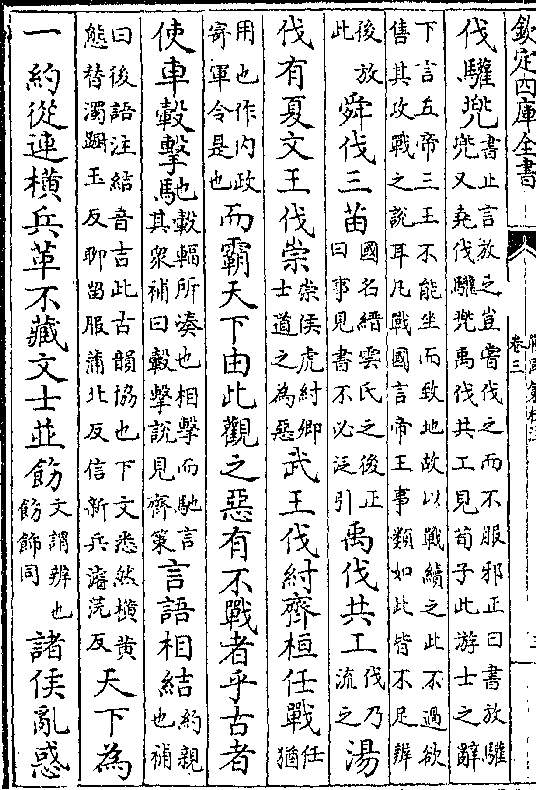 欽定四庫全書
卷三
伐驩兜書止言放之豈嘗伐之而不服邪正曰書放驩兜又堯伐驩兜禹伐共工見荀子此游士之辭
下言五帝三王不能坐而致地故以戰續之此不過欲售其攻戰之說耳凡戰國言帝王事類如此皆不足辨
後放此舜伐三苗國名縉雲氏之後正曰事見書不必泛引禹伐共工伐乃流之湯
伐有夏文王伐崇崇侯虎紂卿士道之為惡武王伐紂齊桓任戰任猶
用也作内政寄軍令是也而霸天下由此觀之惡有不戰者乎古者
使車轂擊馳轂輻所湊也相擊而馳言其衆補曰轂擊說見齊策言語相結約親也補
曰後語注結音吉此古韻協也下文悉然橫黄態替濁蹰玉反聊留服蒲北反信新兵濵洸反天下為
一約從連橫兵革不藏文士並飭文謂辨也飭飾同諸侯亂惑